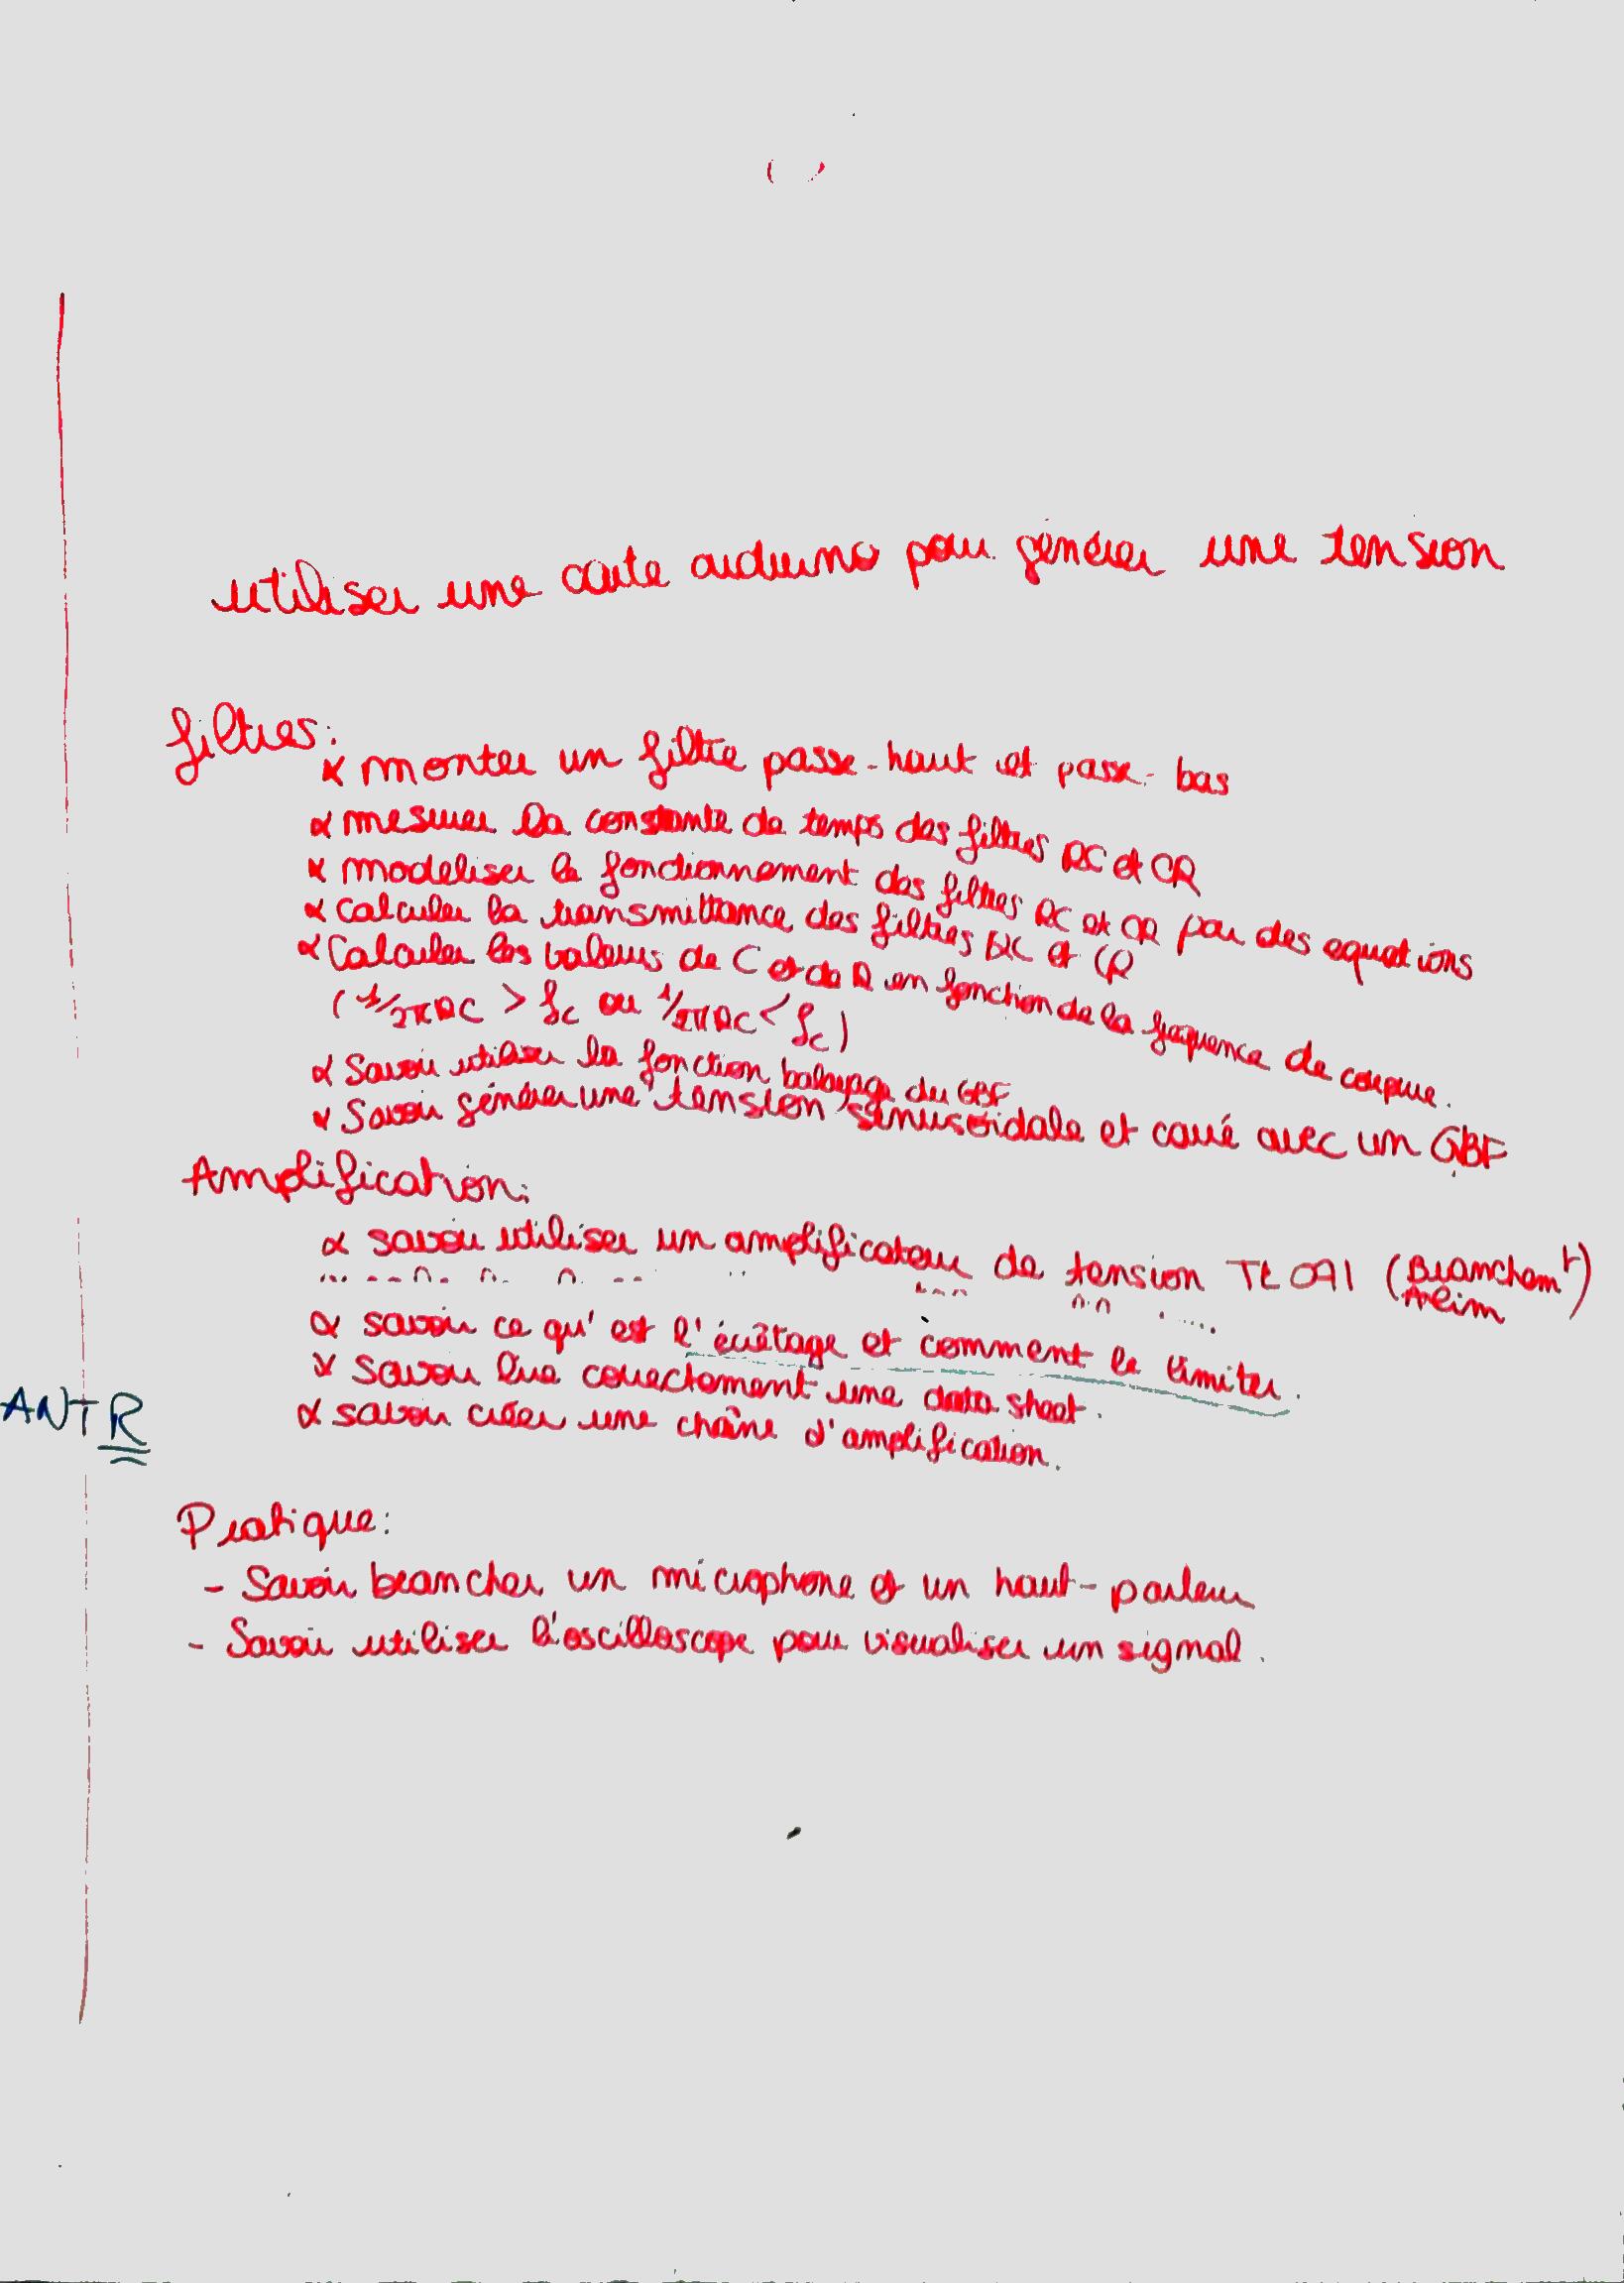 utiliser une carte arduino pour générer une tension
filtres:
× monter un filtre passe-haut et passe-bas
× mesurer la constante de temps des filtres RC et CR
× modeliser le fonctionnement des filtres RC et CR par des equations
× calculer la transmittance des filtres RC et CR
× Calculer les valeurs de C et de R en fonction de la frequence de coupure.
(1/2πRC > fc ou 1/2πRC < fc)
× Savoir utiliser la fonction balayage du GBF
× Savoir générer une tension sinusoïdale et carré avec un GBF
Amplification:
× savoir utiliser un amplificateur de tension TL081 (Branchemt
Alim)
× savoir ce qu'est l'écrêtage et comment le limiter.
× savoir lire correctement une data sheet.
ANTR
× savoir créer une chaîne d'amplification.
Pratique:
- Savoir brancher un microphone et un haut-parleur
- Savoir utiliser l'oscilloscope pour visualiser un signal.